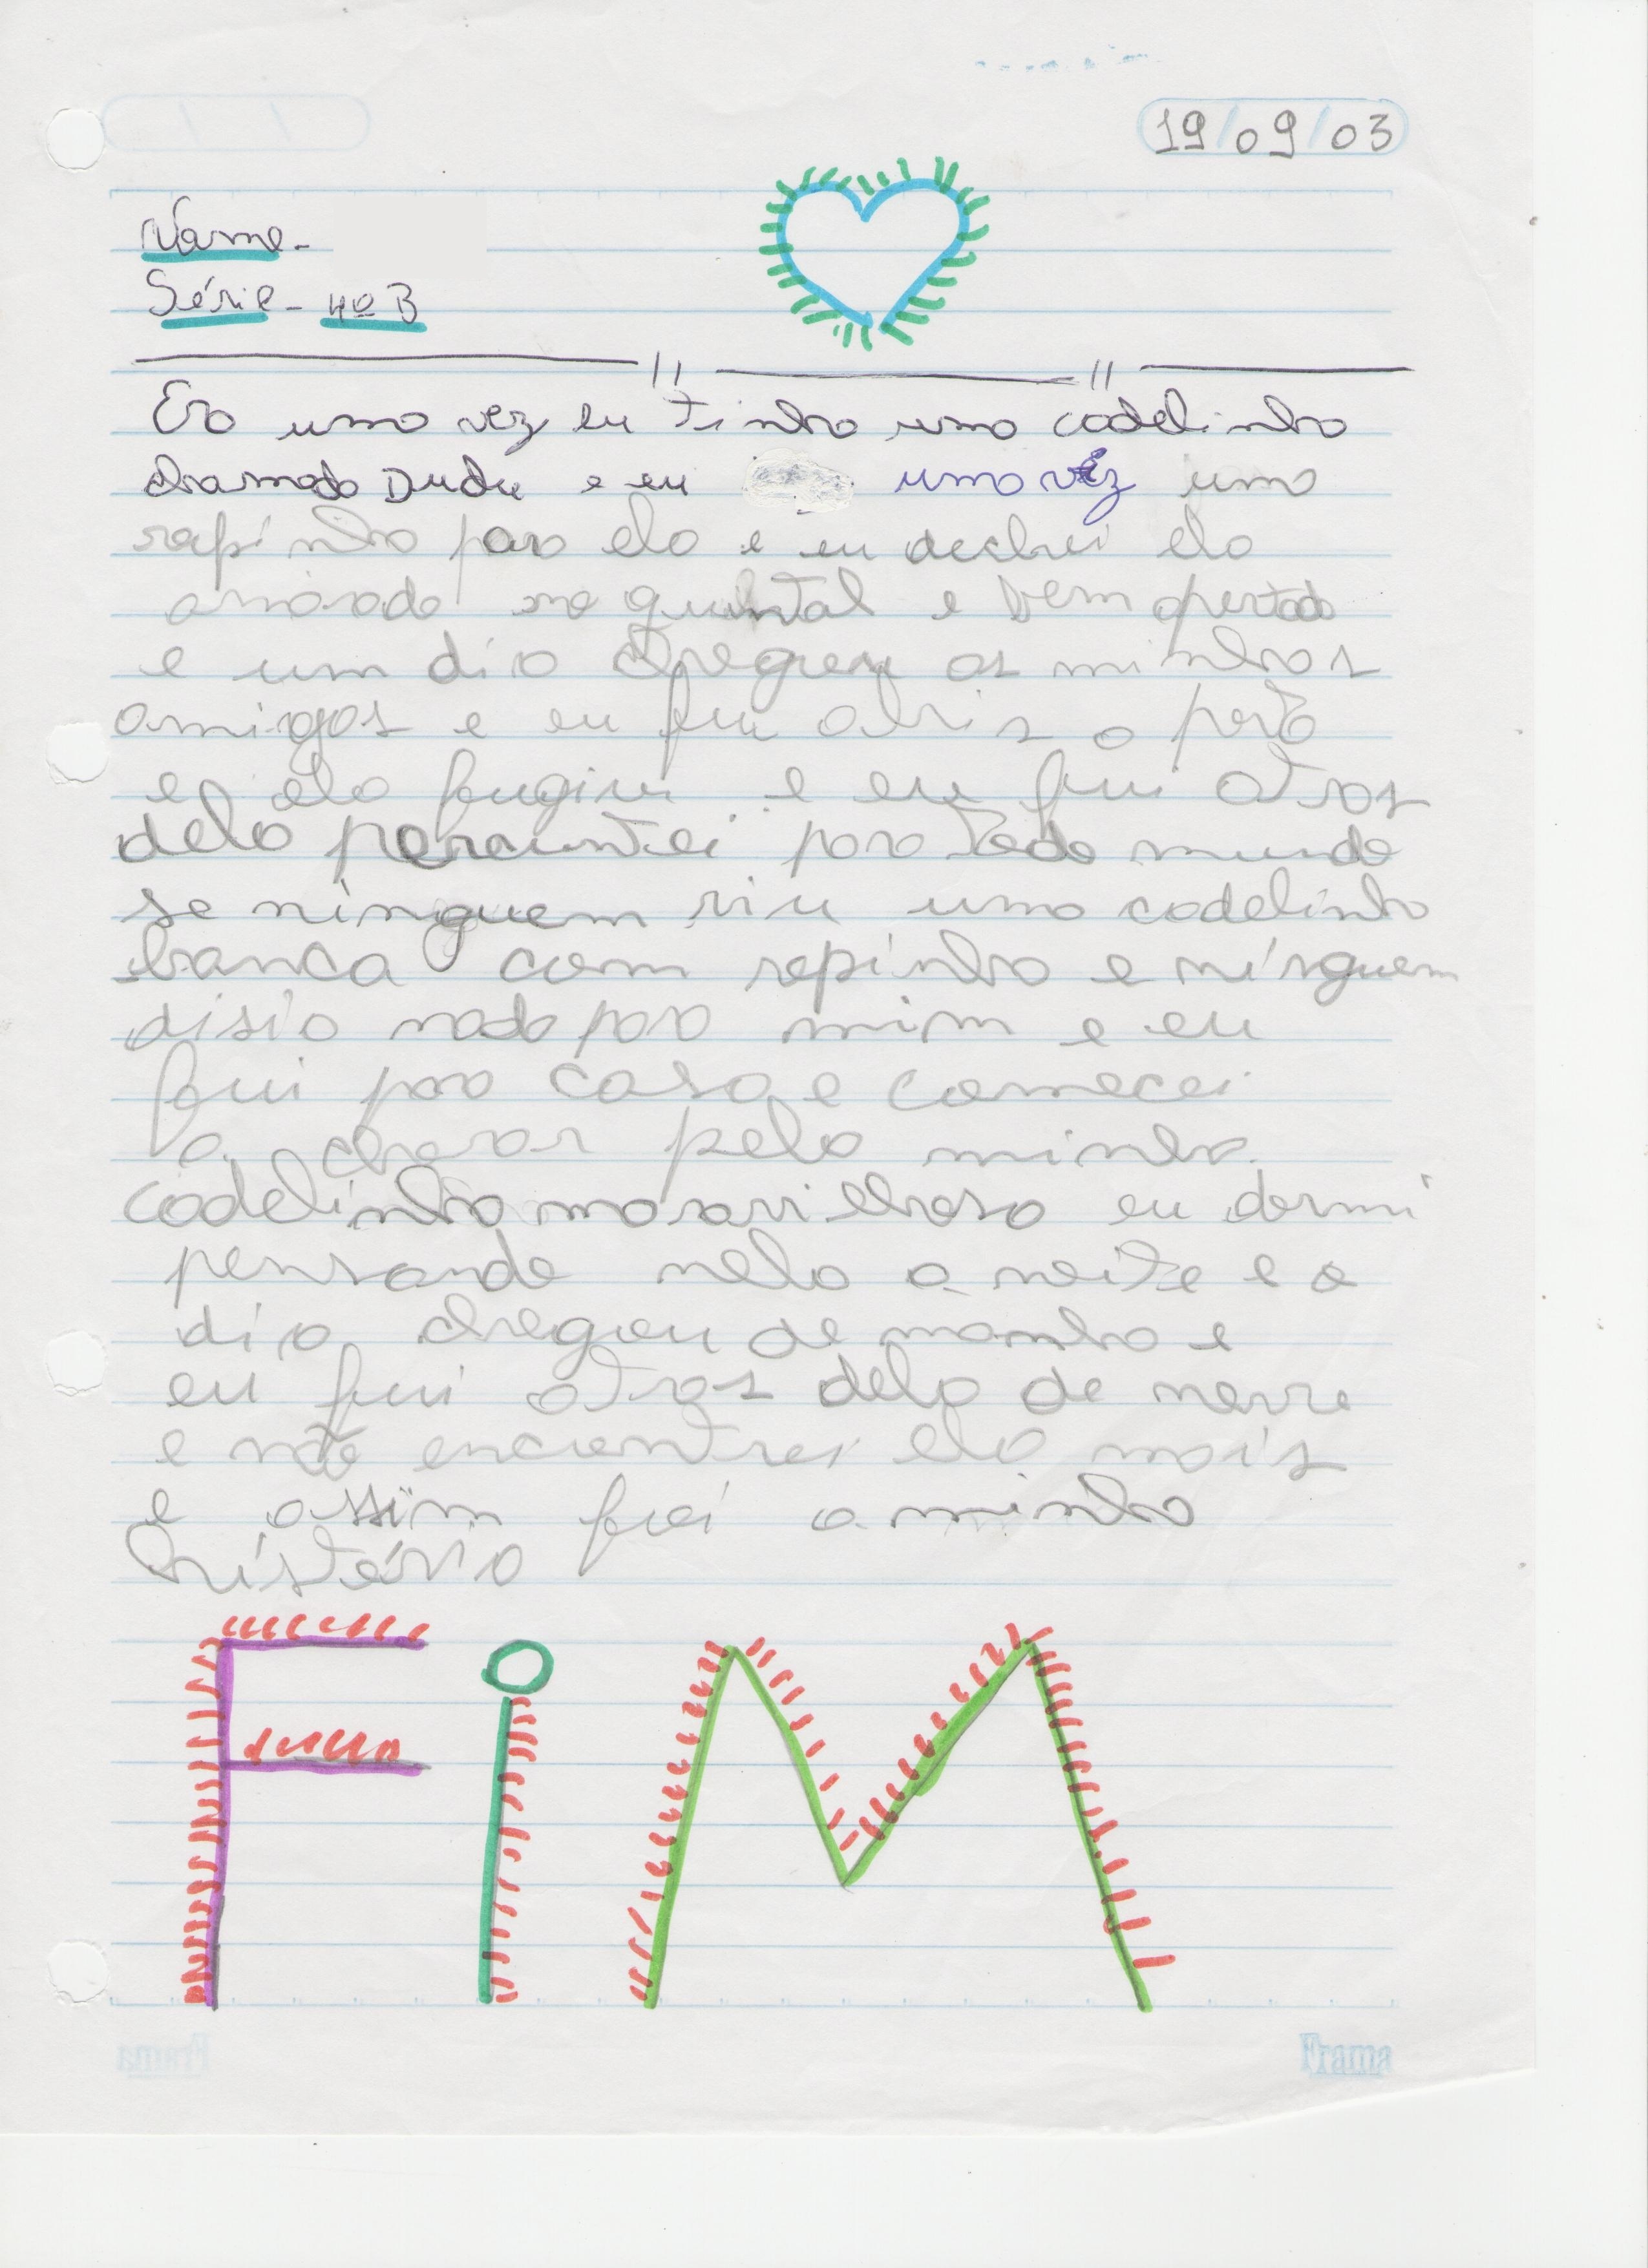 19/09/03
Nome-
Série- 4ª B
Era uma vez eu tinha uma cadelinha
chamada Dudu e eu uma vez uma
rapinha para ela e eu dechei ela
amarada no quintal e bem apertado
e um dia chegou as minhas
amigas e eu fui abris o portõ
e ela fugiu e eu fui atras
dela percuntei para todo mundo
se ninguem viu uma cadelinha
branca com rapinha e ninguem
disia nada para mim e eu
fui para casa e comecei
a chorar pela minha
cadelinha maravilhosa eu dormi
pensando nela a noite e o
dia chegou de manha e
eu fui atras dela de novo
e não encontrei ela mais
e assim foi a minha
história
FiM
Frama